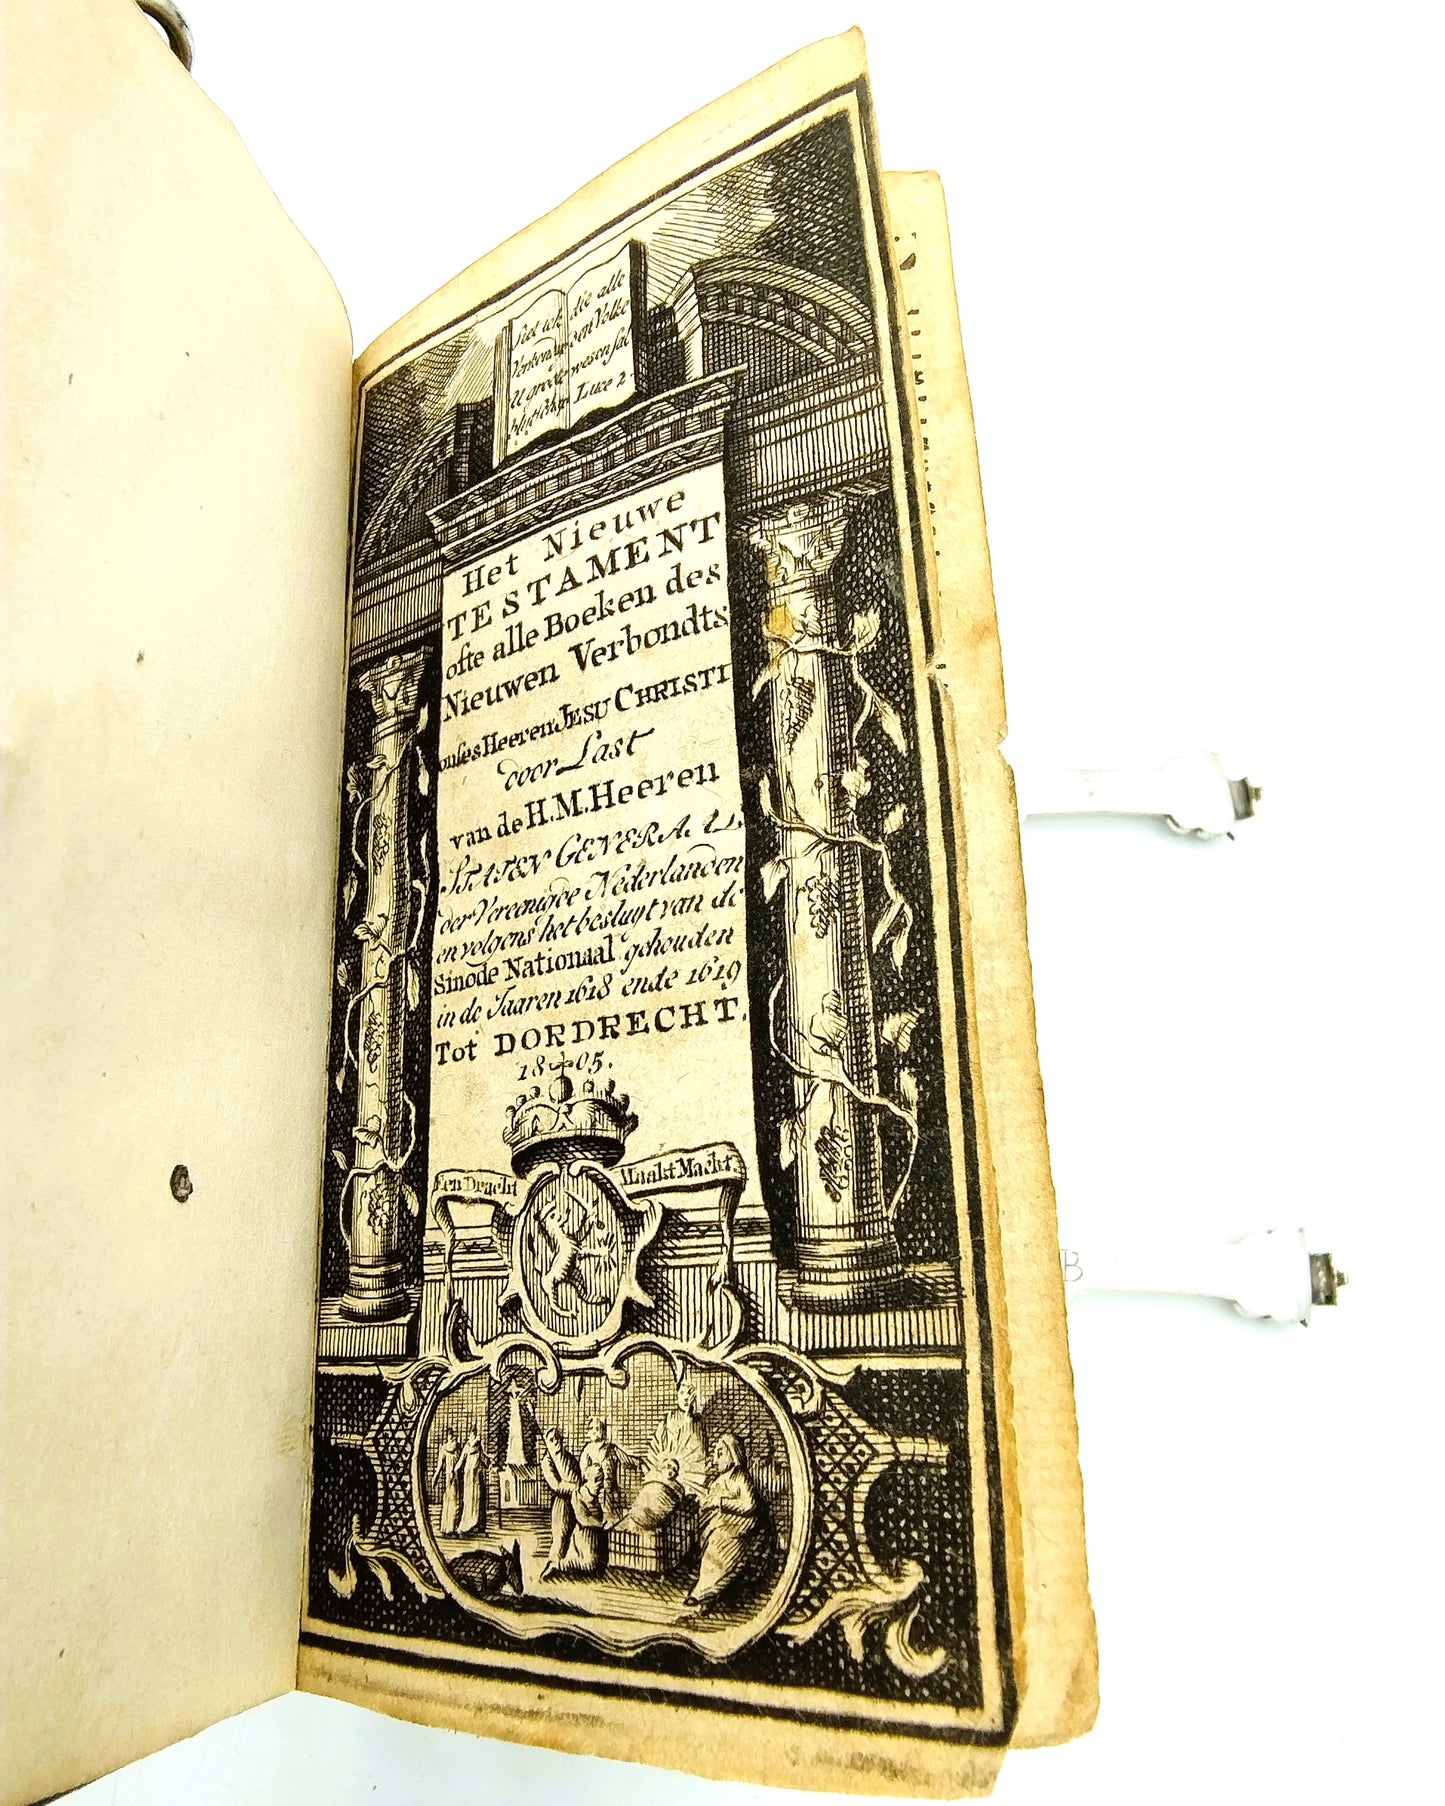 Siet ick
Verkondige
U groote
blytschap
die alle
den Volke
wesen sal
Luce 2
Het Nieuwe
TESTAMENT
ofte alle Boeken des
Nieuwen Verbondts
onses Heeren JESU CHRISTI
door Last
van de H.M. Heeren
STATEN GENERAAL
der Vereenigde Nederlanden
en volgens het besluyt van de
Sinode Nationaal gehouden
in de Jaaren 1618 ende 1619
Tot DORDRECHT.
1805.
Een Dracht Maakt Macht.
B